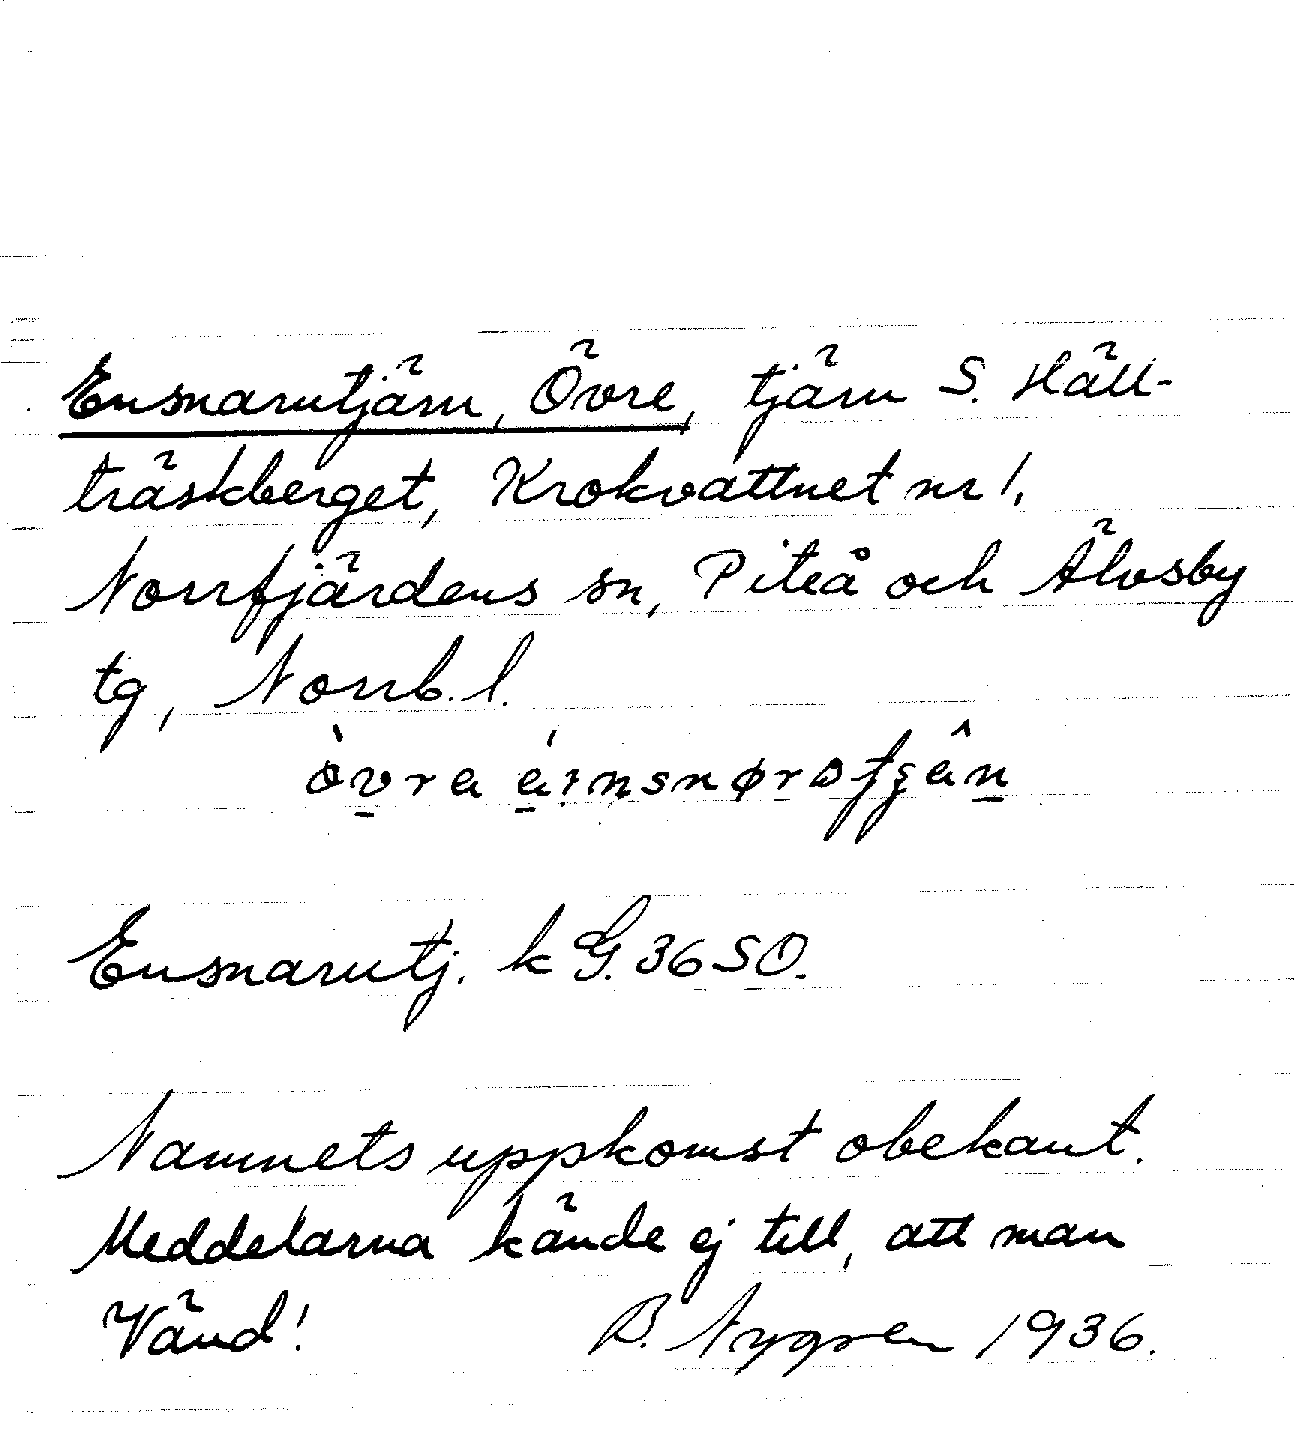 Ensnarutjärn, Övre, tjärn S. Häll-
träskberget, Krokvattnet nr 1,
Norrfjärdens sn, Piteå och Älvsby
tg, Norrb. l.
òvra
Ensnarutj. k G. 36 SO.
Namnets uppkomst obekant.
Meddelarna kände ej till, att man
Vänd! B. Nygren 1936.